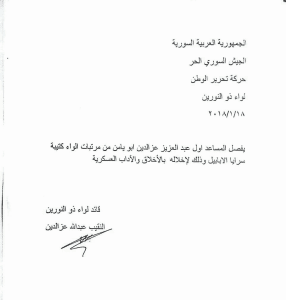 الجمهورية العربية السورية
الجيش السوري الحر
حركة تحرير الوطن
لواء ذو النورين
٢٠١٨/١/١٨
يفصل المساعد اول عبد العزيز عزالدين ابو يامن من مرتبات الواء كتيبة
سرايا الابابيل وذلك لإخلاله بالأخلاق والأداب العسكرية
قائد لواء ذو النورين
النقيب عبدالله عزالدين